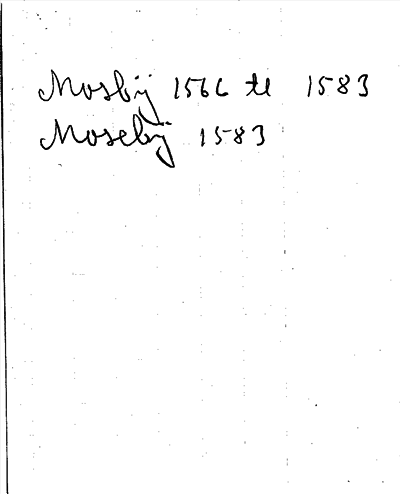 Mosbÿ 1566 te 1583
Mosebÿ 1583